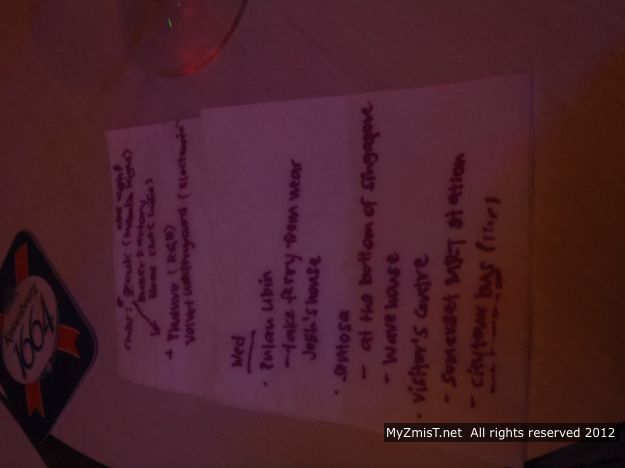 clubs: Zouk (Mambo Night)
Butter Factory
Home Club
+ Phuture (R&B)
Velvet Underground (Electronic
Wed
• Pulau Ubin
- take ferry from near
Josh's house
• Sentosa
- at the bottom of Singapore
- Wave house
• Visitor's Centre
- Somerset MRT Station
- City tour bus
Kronenbourg
1664
MyZmisT.net All rights reserved 2012